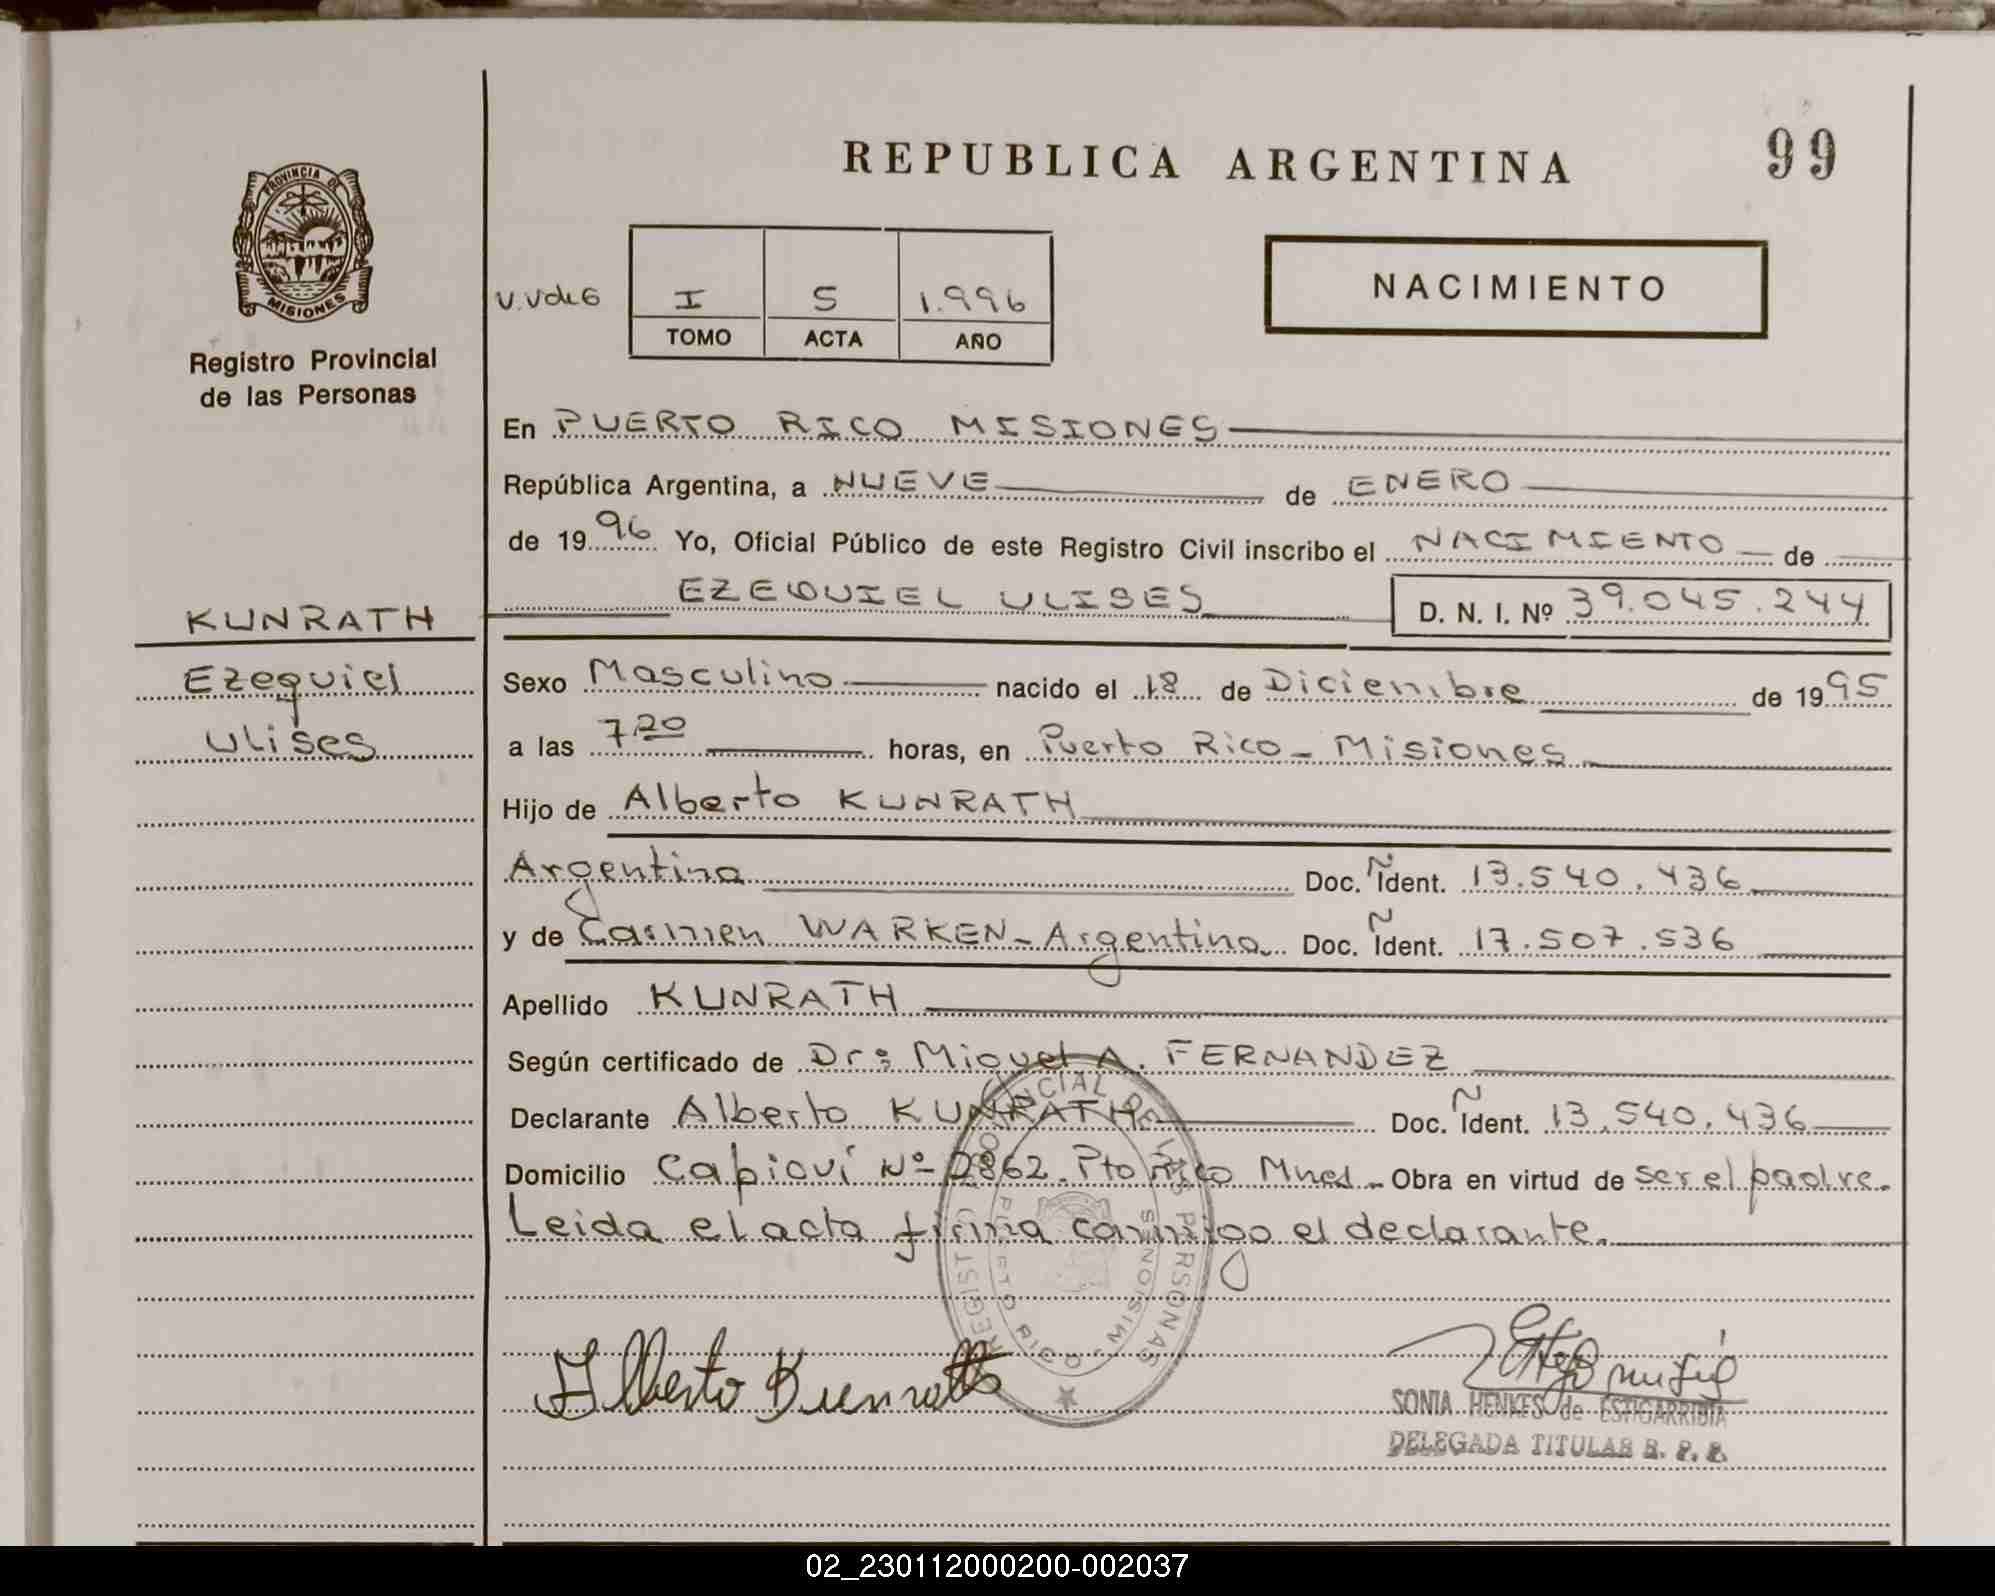 REPUBLICA ARGENTINA
99
PROVINCIA DE
MISIONES
Registro Provincial
de las Personas
I S 1.996
TOMO ACTA AÑO
NACIMIENTO
En PUERTO RICO MISIONES
República Argentina, a NUEVE de ENERO
de 1996 Yo, Oficial Público de este Registro Civil inscribo el NACIMIENTO de
EZEQUIEL ULISES D. N. I. Nº 39.045.244
KUNRATH
Ezequiel
Ulises
Sexo Masculino nacido el 18 de Diciembre de 1995
a las 7,20 horas, en Puerto Rico - Misiones
Hijo de Alberto KUNRATH
Argentina Doc. Ñ Ident. 13.540.436
y de Carmen WARKEN - Argentina Doc. Ñ Ident. 17.507.536
Apellido KUNRATH
Según certificado de Dr: Miguel A. FERNANDEZ
Declarante Alberto KUNRATH Doc. Ñ Ident. 13.540.436
Domicilio Capioví Nº 2862. Pto Rico Mnes - Obra en virtud de ser el padre.
Leida el acta firma conmigo el declarante.
REGISTRO PROVINCIAL DE LAS PERSONAS
PUERTO RICO - MISIONES
Alberto Kunrath
SONIA HENKES de ESTIGARRIBIA
DELEGADA TITULAR R. P. P.
02_230112000200-002037